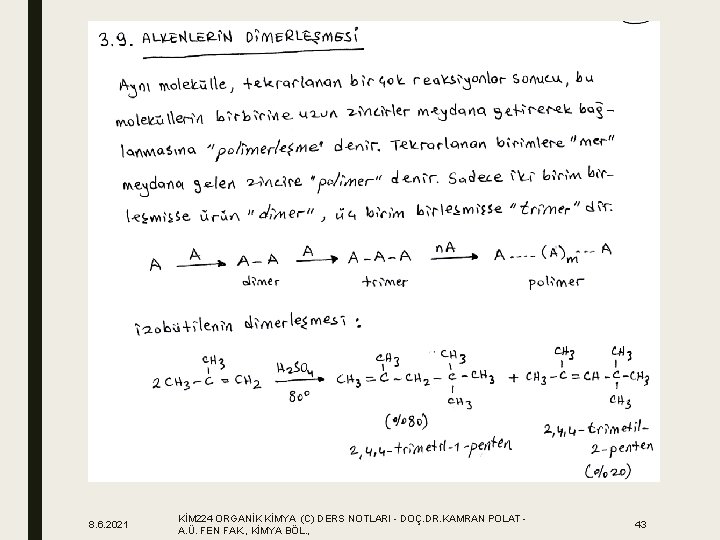 3.9. ALKENLERİN DİMERLEŞMESİ
Aynı molekülle, tekrarlanan bir çok reaksiyonlar sonucu, bu
moleküllerin birbirine uzun zincirler meydana getirerek bağ-
lanmasına "polimerleşme" denir. Tekrarlanan birimlere "mer"
meydana gelen zincire "polimer" denir. Sadece iki birim bir-
leşmişse ürün "dimer", üç birim birleşmişse "trimer" dir.
A —A→ A-A —A→ A-A-A —nA→ A....(A)m....A
dimer trimer polimer
izobütilenin dimerleşmesi:
CH3 CH3 CH3 CH3 CH3
2CH3-C=CH2 —H2SO4→ CH3=C-CH2-C-CH3 + CH3-C=CH-C-CH3
80° CH3 CH3
(%80)
2,4,4-trimetil-1-penten
2,4,4-trimetil-
2-penten
(%20)
8.6.2021
KİM224 ORGANİK KİMYA (C) DERS NOTLARI - DOÇ.DR.KAMRAN POLAT -
A.Ü. FEN FAK., KİMYA BÖL.,
43